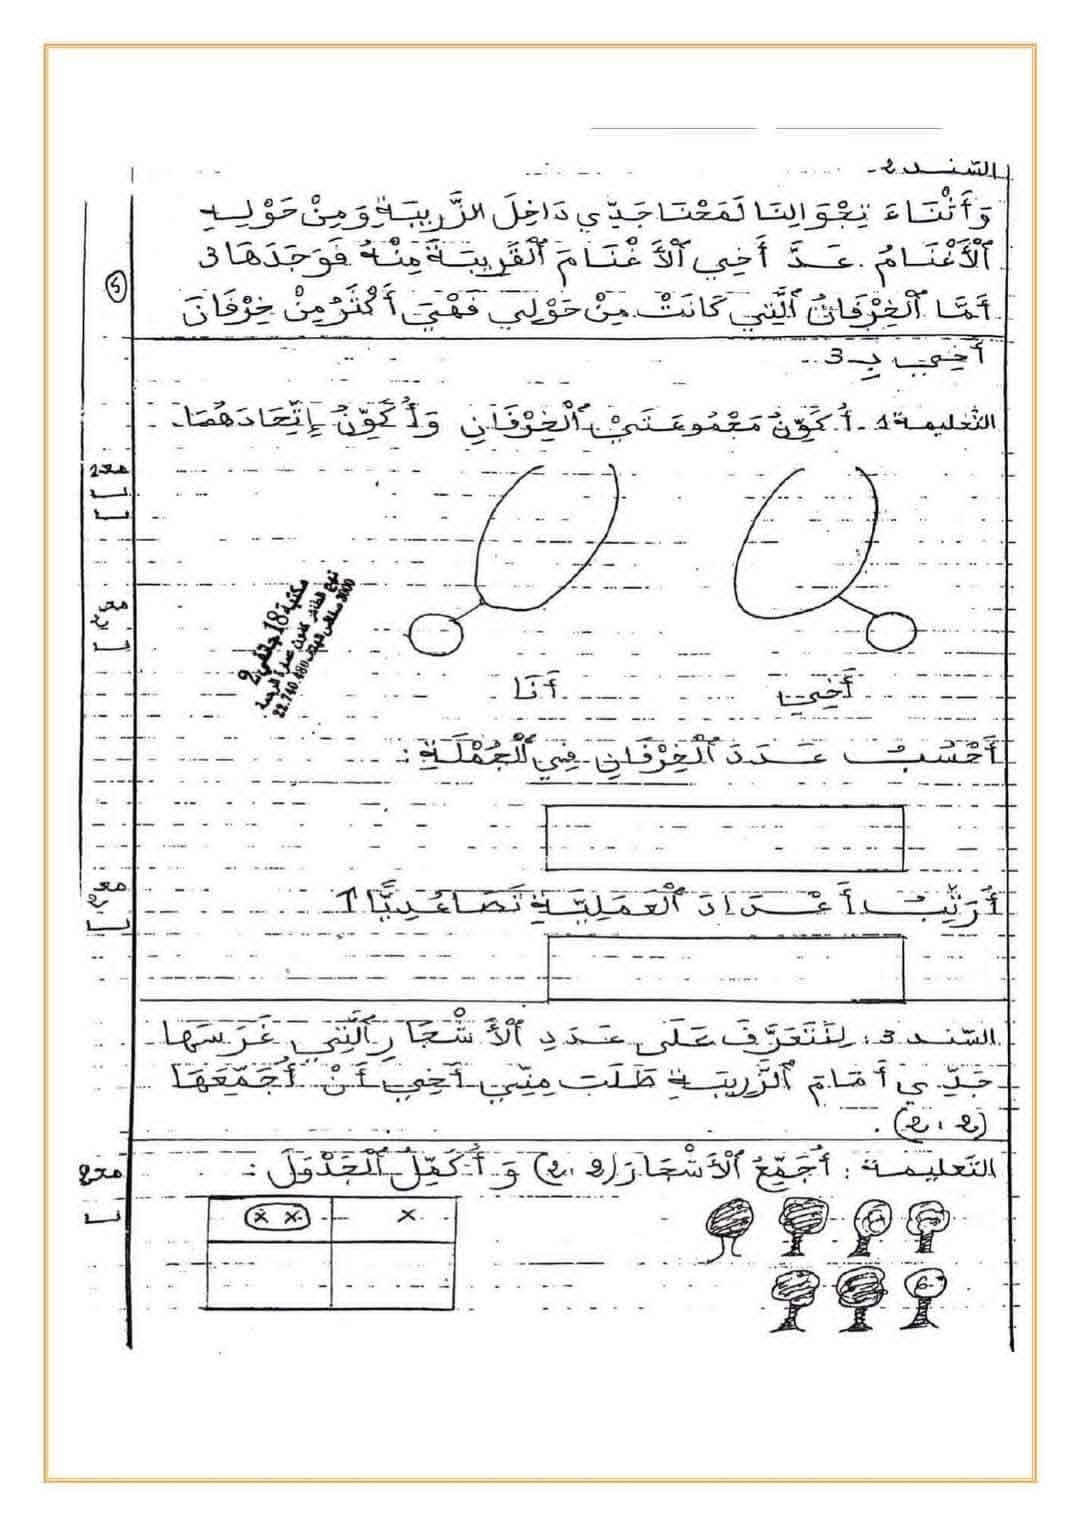 السّند 2-
وَأَثْنَاءَ تِجْوَالِنَا لَمَحْنَا جَدِّي دَاخِلَ الزَّرِيبَةِ وَمِنْ حَوْلِهِ
ٱلْأَغْنَامُ. عَدَّ أَخِي ٱلْأَغْنَامَ ٱلْقَرِيبَةَ مِنْهُ فَوَجَدَهَا 3
أَمَّا ٱلْخِرْفَانُ ٱلَّتِي كَانَتْ مِنْ حَوْلِي فَهْيَ أَكْثَرُ مِنْ خِرْفَانَ
أَخِي بِـ 3
5
التّعليمة 1 - أُكَوِّنُ مَجْمُوعَتَيْ ٱلْخِرْفَانِ وَأُكَوِّنُ إِتِّحَادَهُمَا.
مع 2
مكتبة 18 جانفي 2
نهج الطاهر كمون عمارة الرحمة
22.740.480 صفاقس 3000
أَخِي
أَنَا
أَحْسُبُ عَدَدَ ٱلْخِرْفَانِ فِي ٱلْجُمْلَةِ :
أُرَتِّبُ أَعْدَادَ ٱلْعَمَلِيَّةِ تَصَاعُدِيًّا
السّند 3 : لِنَتَعَرَّفَ عَلَى عَدَدِ ٱلْأَشْجَارِ ٱلَّتِي غَرَسَهَا
جَدِّي أَمَامَ ٱلزَّرِيبَةِ طَلَبَ مِنِّي أَخِي أَنْ أُجَمِّعَهَا
(2 ، 2).
مع 2
التّعليمة : أُجَمِّعُ ٱلْأَشْجَارَ (2 ، 2) وَ أُكَمِّلُ ٱلْجَدْوَلَ :
× ××